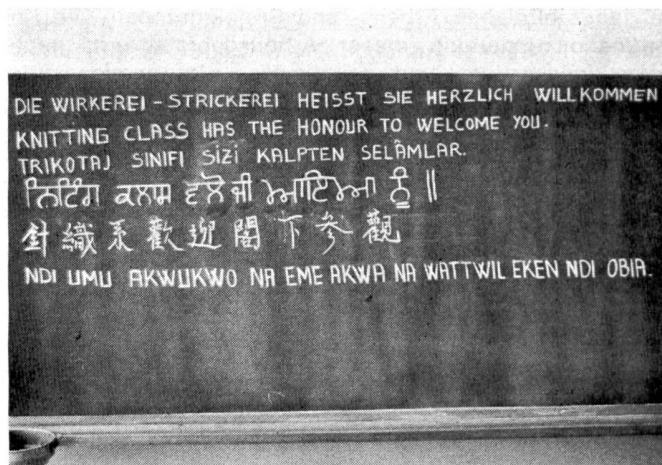 DIE WIRKEREI - STRICKEREI HEISST SIE HERZLICH WILLKOMMEN
KNITTING CLASS HAS THE HONOUR TO WELCOME YOU.
TRIKOTAJ SINIFI SİZİ KALPTEN SELÂMLAR.
ਨਿਟਿੰਗ ਕਲਾਸ ਵਲੋਂ ਜੀ ਆਇਆਂ ਨੂੰ ॥
針織系歡迎閣下參觀
NDI UMU AKWUKWO NA EME AKWA NA WATTWIL EKEN NDI OBIA.